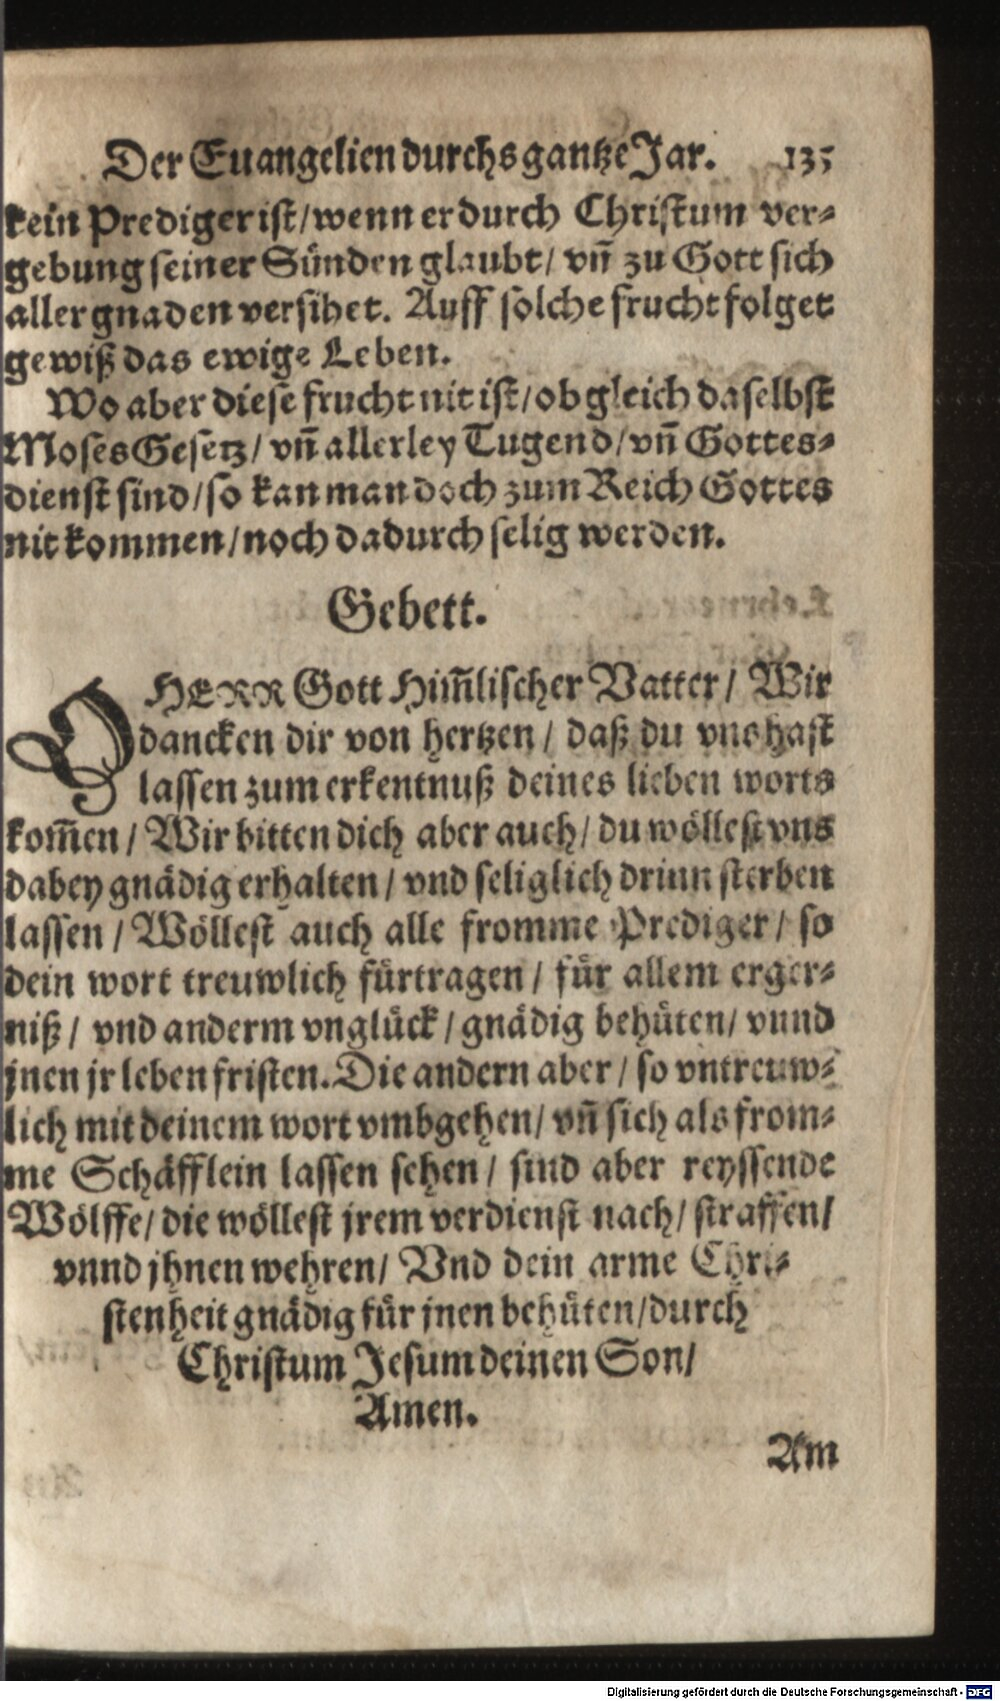 Der Euangelien durchs gantze Jar. 135
kein Prediger ist/ wenn er durch Christum ver-
gebung seiner Sünden glaubt/ vñ zu Gott sich
aller gnaden versihet. Auff solche frucht folget
gewiß das ewige Leben.
Wo aber diese frucht nit ist/ ob gleich daselbst
Moses Gesetz/ vñ allerley Tugend/ vñ Gottes-
dienst sind/ so kan man doch zum Reich Gottes
nit kommen/ noch dadurch selig werden.
Gebett.
O HERR Gott Him̃lischer Vatter/ Wir
dancken dir von hertzen/ daß du vns hast
lassen zum erkentnuß deines lieben worts
kom̃en/ Wir bitten dich aber auch/ du wöllest vns
dabey gnädig erhalten/ vnd seliglich drinn sterben
lassen/ Wöllest auch alle fromme Prediger/ so
dein wort treuwlich fürtragen/ für allem erger-
niß/ vnd anderm vnglück/ gnädig behüten/ vnnd
jnen jr leben fristen. Die andern aber/ so vntreuw-
lich mit deinem wort vmbgehen/ vñ sich als from-
me Schäfflein lassen sehen/ sind aber reyssende
Wölffe/ die wöllest jrem verdienst nach/ straffen/
vnnd jhnen wehren/ Vnd dein arme Chri-
stenheit gnädig für jnen behüten/ durch
Christum Jesum deinen Son/
Amen.
Am
Digitalisierung gefördert durch die Deutsche Forschungsgemeinschaft - DFG